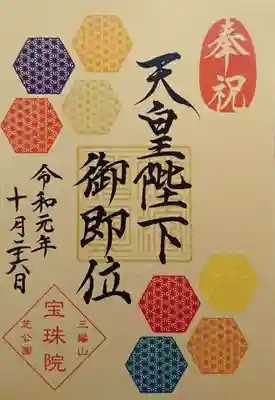 奉祝
天皇陛下
御即位
令和元年
十月二十六日
三縁山
宝珠院
芝公園